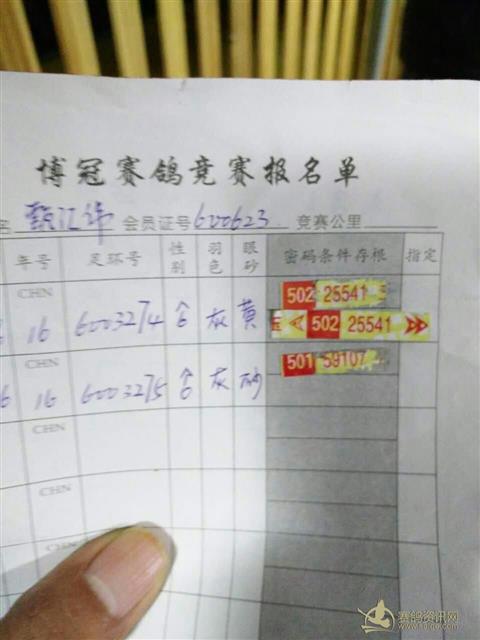 博冠赛鸽竞赛报名单
名 甄江伟 会员证号 600623 竞赛公里
年号 足环号 性别 羽色 眼砂 密码条件存根 指定
CHN 502 25541
16 6003274 ♂ 灰 黄 502 25541
CHN 501 59107
16 6003275 ♂ 灰 砂
CHN
CHN
CHN
赛鸽资讯网